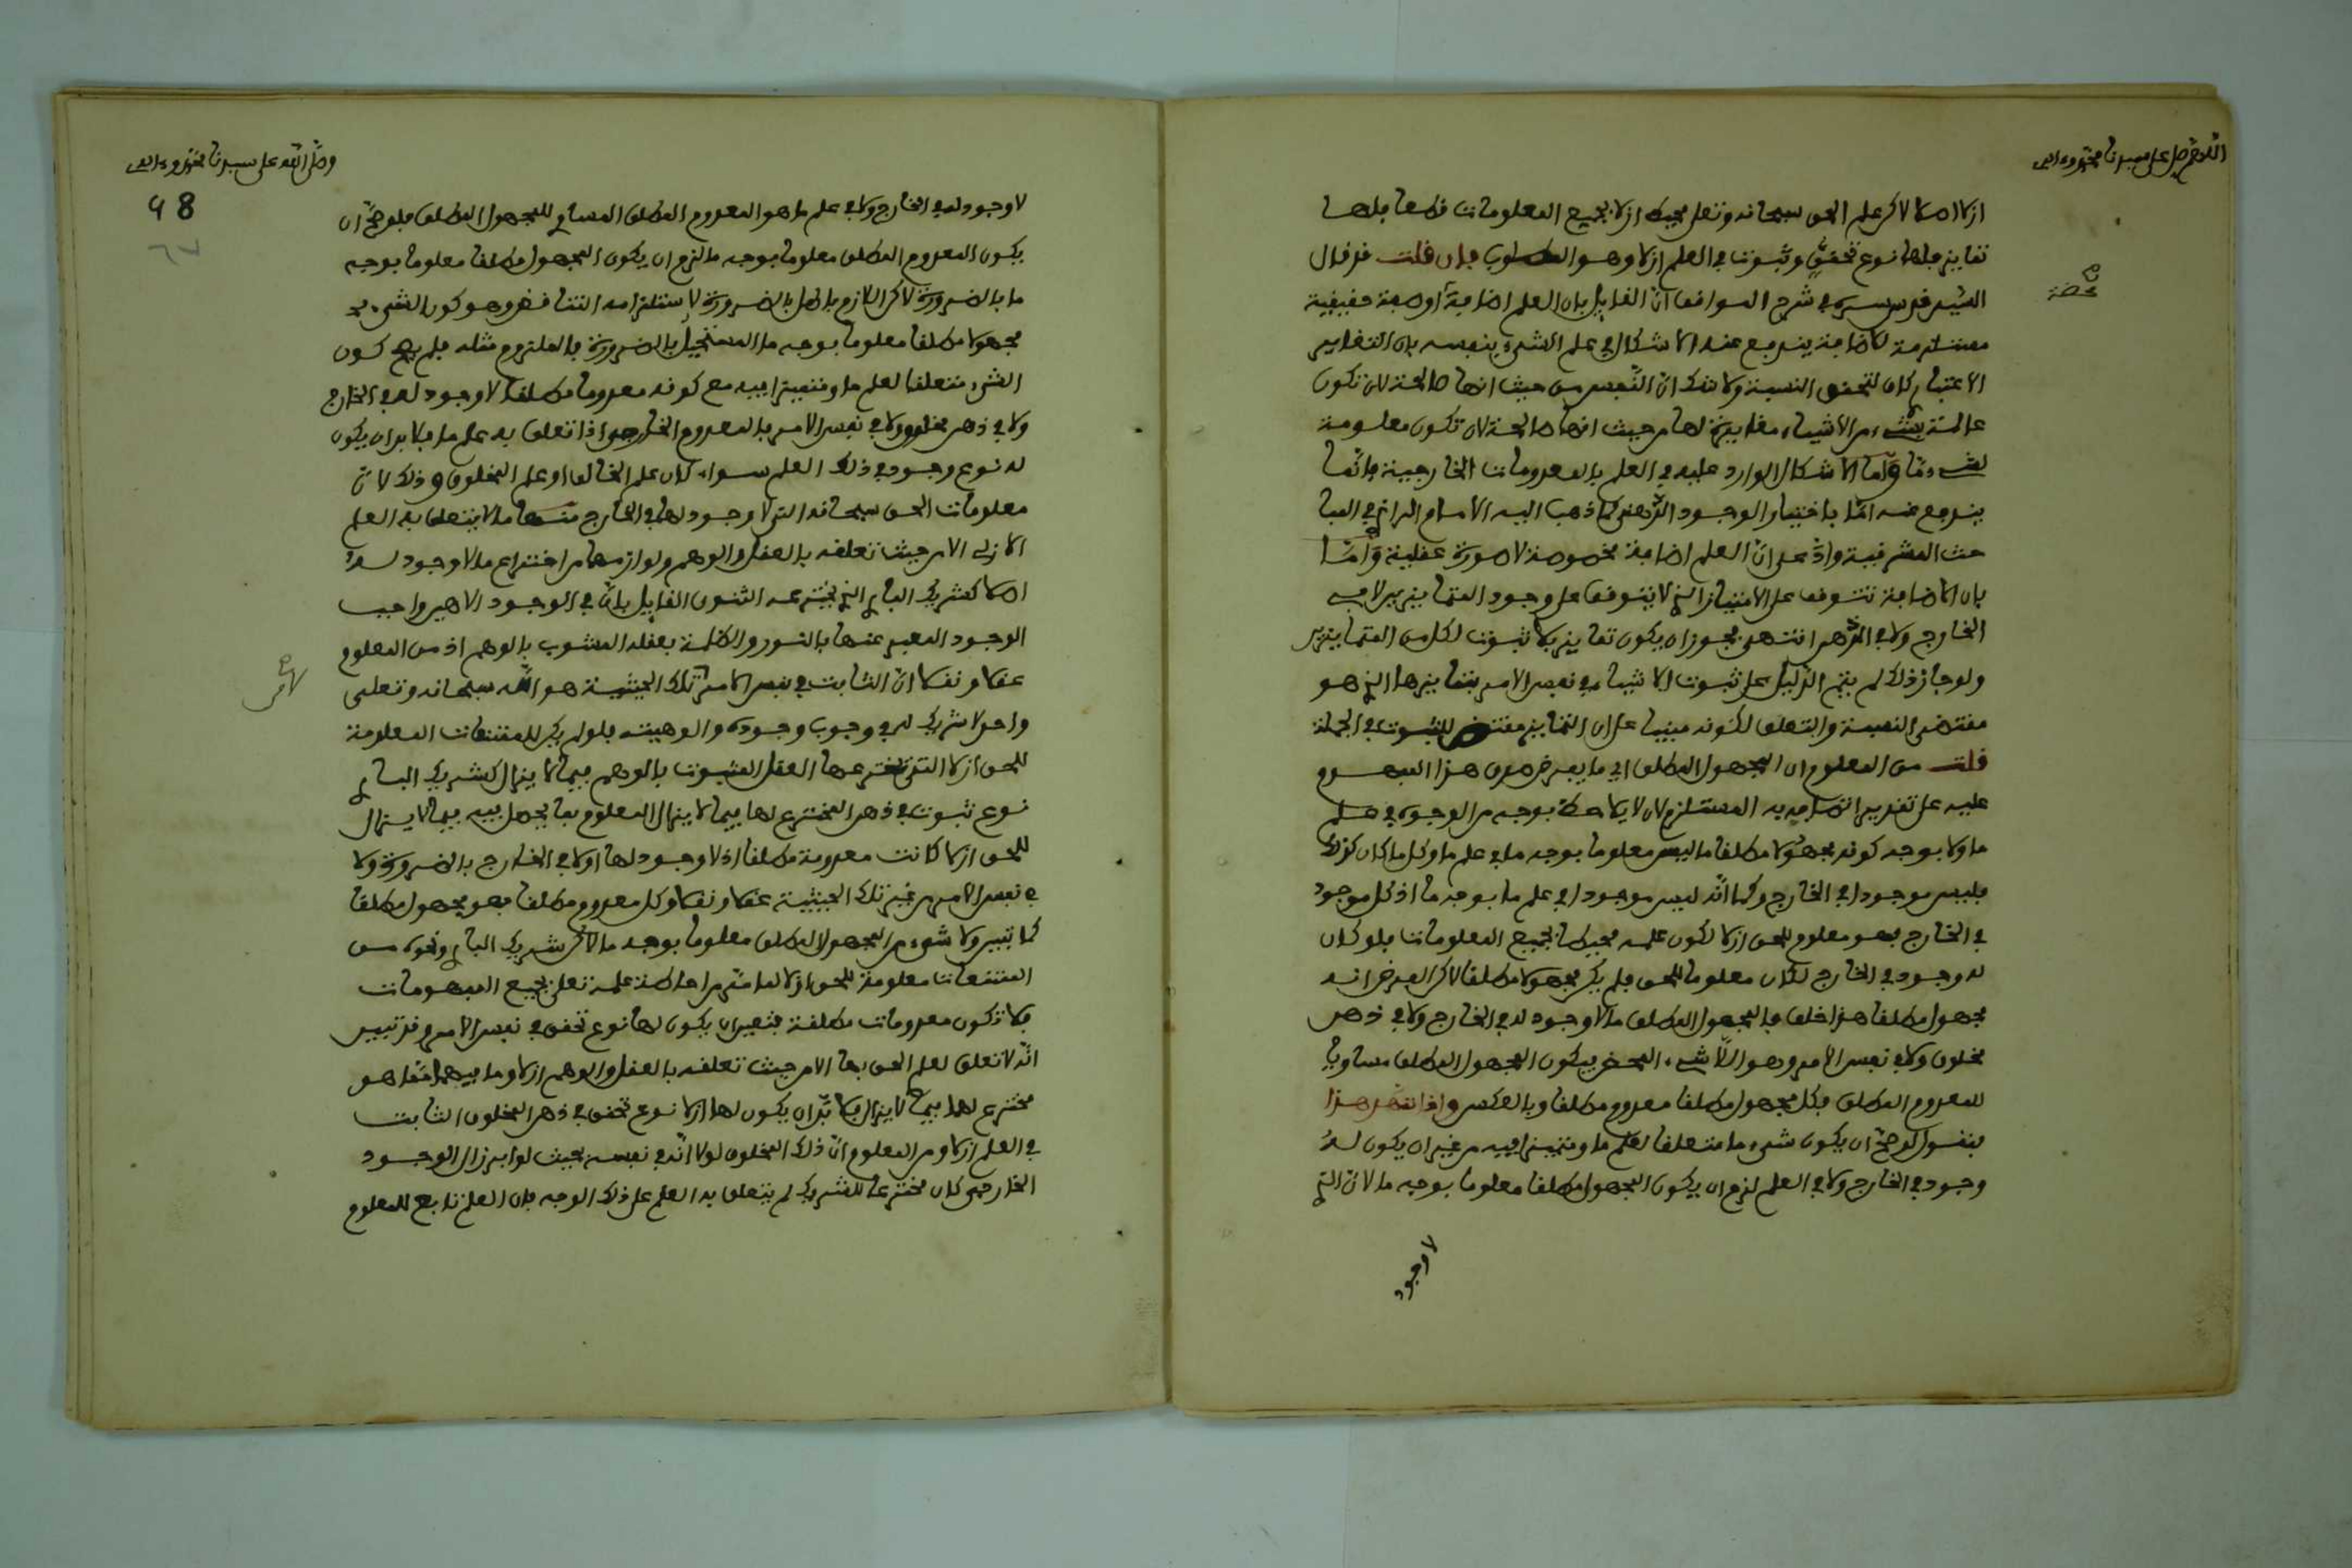 اللهم صل على سيدنا محمد وءاله
ازلا اصلا لاكن علم الحق سبحانه وتعلى محيط ازلا بجميع المعلومات قطعا فلها
تمايز فلها نوع تحقق وثبوت في العلم ازلا وهو المطلوب فان قلت قد قال
السيد قدس سره في شرح المواقف ان القايل بان العلم اضافة أو صفة حقيقية
مستلزمة للاضافة يندفع عنه الاشكال في علم الشيء بنفسه بان التغاير
الاعتباري كاف لتحقق النسبة ولا شك ان النفس من حيث انها صالحة لان تكون
عالمة بشيء من الأشياء مغايرة لها من حيث انها صالحة لان تكون معلومة
لشيء ما وأما الاشكال الوارد عليه في العلم بالمعدومات الخارجية فانما
يندفع عنه اما باختيار الوجود الذهني كما ذهب اليه الامام الرازي في المبا
حث المشرقية وادعى ان العلم اضافة مخصوصة لا صورة عقلية وأما
بان الاضافة تتوقف على الامتياز الذي لا يتوقف على وجود المتمايزين لا في
الخارج ولا في الذهن انتهى فجوز ان يكون تمايز بلا ثبوت لكل من المتمايزين
ولو جاز ذلك لم يتم الدليل على ثبوت الاشياء في نفس الامر بتمايزها الذي هو
مقتضى النسبة والتعلق لكونه مبنيا على ان التمايز مقتض للثبوت في الجملة
قلت من المعلوم ان المجهول المطلق اي ما يفرض صدق هذا المفهوم
عليه على تقدير اتصافه به المستلزم لان لا يلاحظ بوجه من الوجوه في علم
ما ولا بوجه كونه مجهولا مطلقا ما ليس معلوما بوجه ما في علم ما وكل ما كان كذلك
فليس موجودا في الخارج وكما انه ليس موجودا في علم ما بوجه ما اذ كل موجود
في الخارج فهو معلوم للحق ازلا لكون علمه محيطا بجميع المعلومات فلو كان
له وجود في الخارج لكان معلوما للحق فلم يكن مجهولا مطلقا لاكن الفرض انه
مجهول مطلقا هذا خلف فالمجهول المطلق ما لا وجود له في الخارج ولا في ذهن
مخلوق ولا في نفس الامر وهو اللاشيء المحض فيكون المجهول المطلق مساويا
للمعدوم المطلق فكل مجهول مطلقا معدوم مطلقا وبالعكس واذا تقرر هذا
فنقول لو صح ان يكون شيء ما متعلقا لعلم ما ومتميزا فيه من غير ان يكون له
وجود في الخارج ولا في العلم لزم ان يكون المجهول مطلقا معلوما بوجه ما لان الذي
لا وجود
محضة
وصلى الله على سيدنا محمد وءاله
98
لا وجود له في الخارج ولا في علم ما هو المعدوم المطلق المساوي للمجهول المطلق فلو صح ان
يكون المعدوم المطلق معلوما بوجه ما لزم ان يكون المجهول مطلقا معلوما بوجه
ما بالضرورة لاكن اللازم باطل بالضرورة لاستلزامه التناقض وهو كون الشيء
مجهولا مطلقا معلوما بوجه ما المستحيل بالضرورة فالملزوم مثله فلم يصح كون
الشيء متعلقا لعلم ما ومتميزا فيه مع كونه معدوما مطلقا لا وجود له في الخارج
ولا في ذهن مخلوق ولا في نفس الامر فالمعدوم الخارجي اذا تعلق به علم ما فلا بد ان يكون
له نوع وجود في ذلك العلم سواء كان علم الخالق او علم المخلوق وذلك لان
معلومات الحق سبحانه التي لا وجود لها في الخارج منها ما لا يتعلق به العلم
الازلي الا من حيث تعلقه بالعقل والوهم ولوازمهما من اختراع ما لا وجود له
اصلا كشريك الباري الذي يخترعه الثنوي القايل بان في الوجود الاهين واجب
الوجود المعبر عنهما بالنور والظلمة بعقله المشوب بالوهم اذ من المعلوم
عقلا ونقلا ان الثابت في نفس الامر تلك الحيثية هو الله سبحانه وتعلى
واحد لا شريك له في وجوب وجوده والوهيته فلو لم يكن للممتنعات المعلومة
للحق ازلا التي يخترعها العقل المشوب بالوهم فيما لا يزال كشريك الباري
نوع ثبوت في ذهن المخترع لها فيما لا يزال المعلوم بما يحصل فيه فيما لا يزال
للحق ازلا كانت معدومة مطلقا اذ لا وجود لها اولا في الخارج بالضرورة ولا
في نفس الامر من غير تلك الحيثية عقلا ونقلا وكل معدوم مطلقا فهو مجهول مطلقا
كما تبين ولا شيء من المجهول المطلق معلوما بوجه ما لاكن شريك الباري ونحوه من
الممتنعات معلومة للحق ازلا لما مر من احاطة علمه تعلى بجميع المفهومات
فلا تكون معدومات مطلقة فتعين ان يكون لها نوع تحقق في نفس الامر وقد تبين
انه لا تعلق لعلم الحق بها الا من حيث تعلقه بالعقل والوهم ازلا وما فيهما مما هو
مخترع لهما فيما لا يزال فلا بد ان يكون لها ازلا نوع تحقق في ذهن المخلوق الثابت
في العلم ازلا ومن المعلوم ان ذلك المخلوق لولا انه في نفسه بحيث لو ابرز الى الوجود
الخارجي كان مخترعا للشريك لم يتعلق به العلم على ذلك الوجه فان العلم تابع للمعلوم